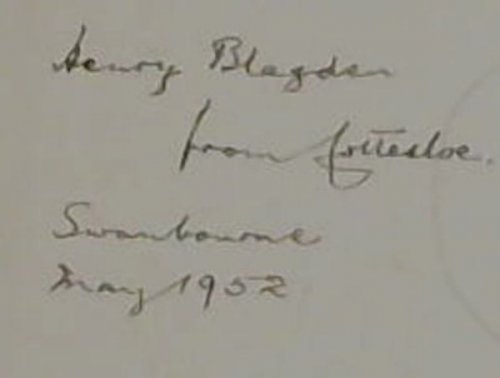 Henry Blagden
from Cottesloe.
Swanbourne
May 1952